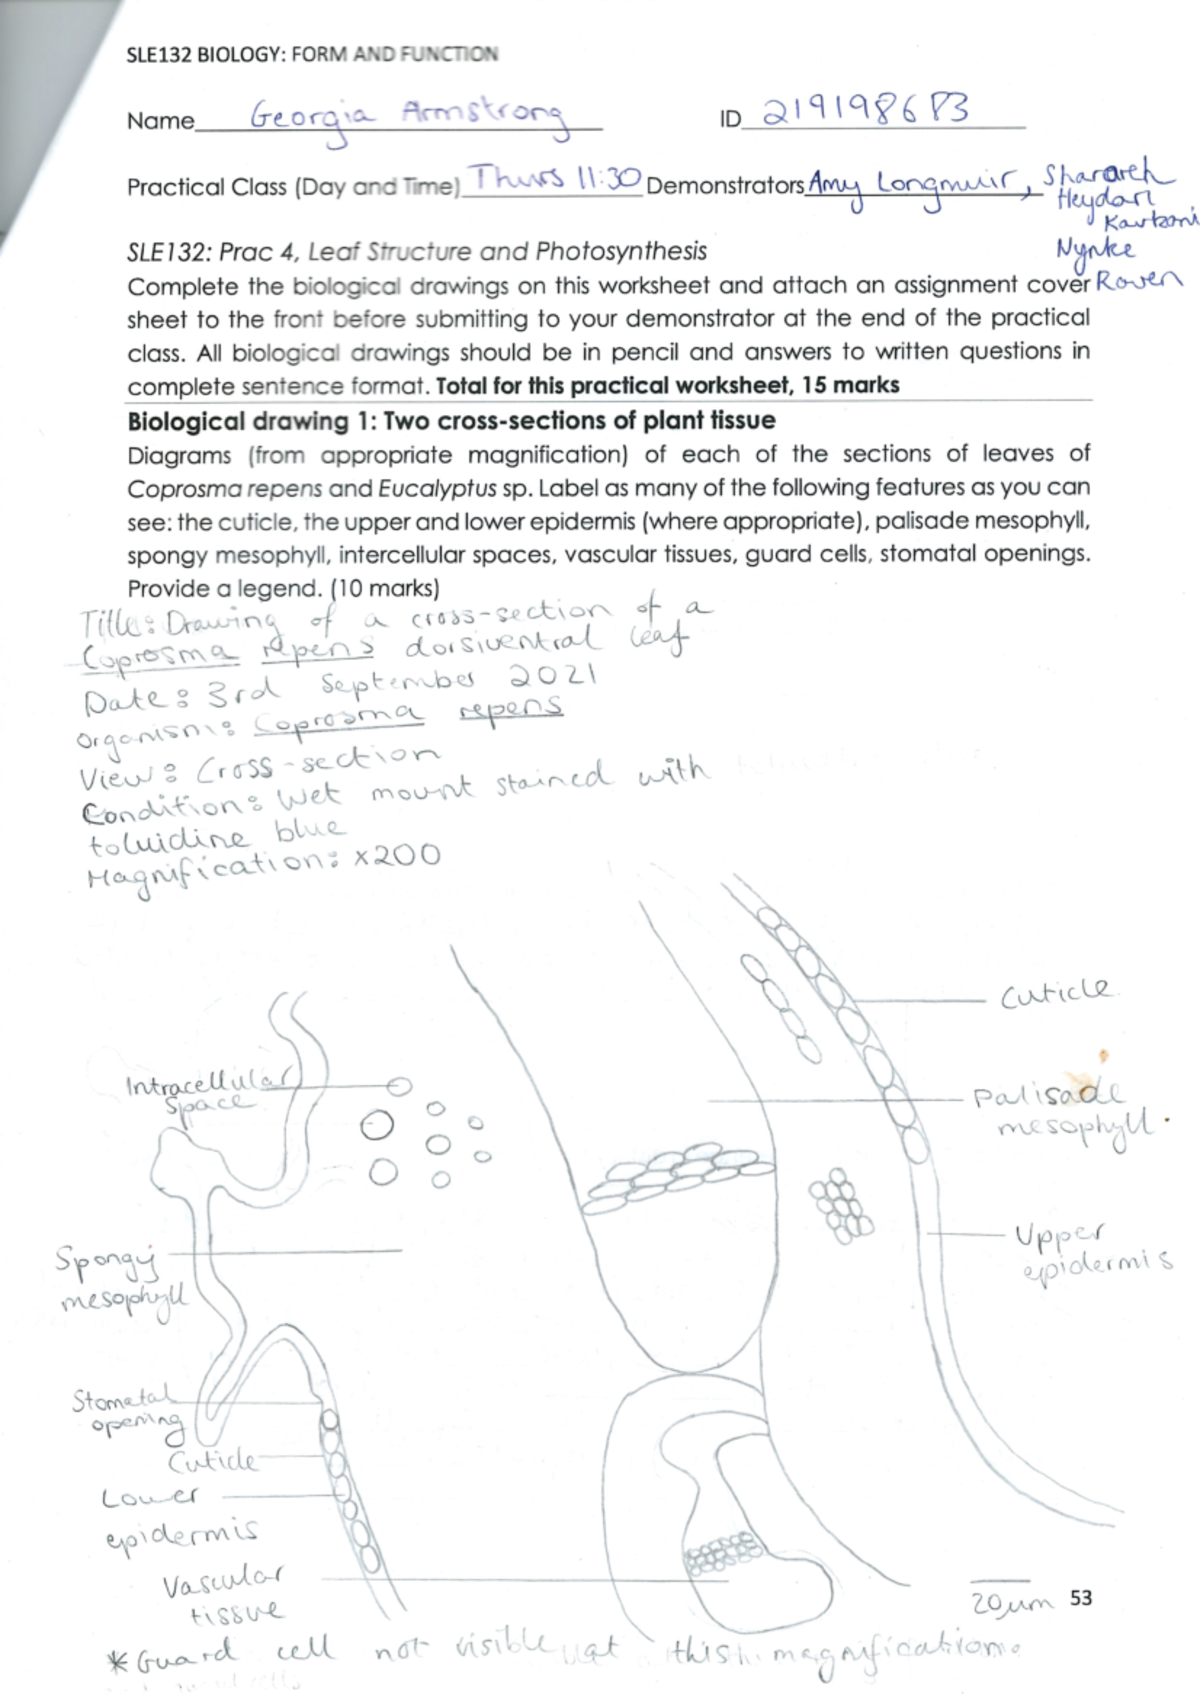 SLE132 BIOLOGY: FORM AND FUNCTION
Name Georgia Armstrong ID 219198683
Practical Class (Day and Time) Thurs 11:30 Demonstrators Amy Longmuir, Sharareh
Heydari
Nynke
Raven
SLE132: Prac 4, Leaf Structure and Photosynthesis
Complete the biological drawings on this worksheet and attach an assignment cover
sheet to the front before submitting to your demonstrator at the end of the practical
class. All biological drawings should be in pencil and answers to written questions in
complete sentence format. Total for this practical worksheet, 15 marks
Biological drawing 1: Two cross-sections of plant tissue
Diagrams (from appropriate magnification) of each of the sections of leaves of
Coprosma repens and Eucalyptus sp. Label as many of the following features as you can
see: the cuticle, the upper and lower epidermis (where appropriate), palisade mesophyll,
spongy mesophyll, intercellular spaces, vascular tissues, guard cells, stomatal openings.
Provide a legend. (10 marks)
Title: Drawing of a cross-section of a
Coprosma repens dorsiventral leaf
Date: 3rd September 2021
Organism: Coprosma repens
View: Cross-section
Condition: Wet mount stained with
toluidine blue
Magnification: x200
Cuticle
Intracellular
space
Palisade
mesophyll.
Spongy
mesophyll
Upper
epidermis
Stometal
opening
Cuticle
Lower
epidermis
Vascular
tissue
20um 53
*Guard cell not visible at this magnification.